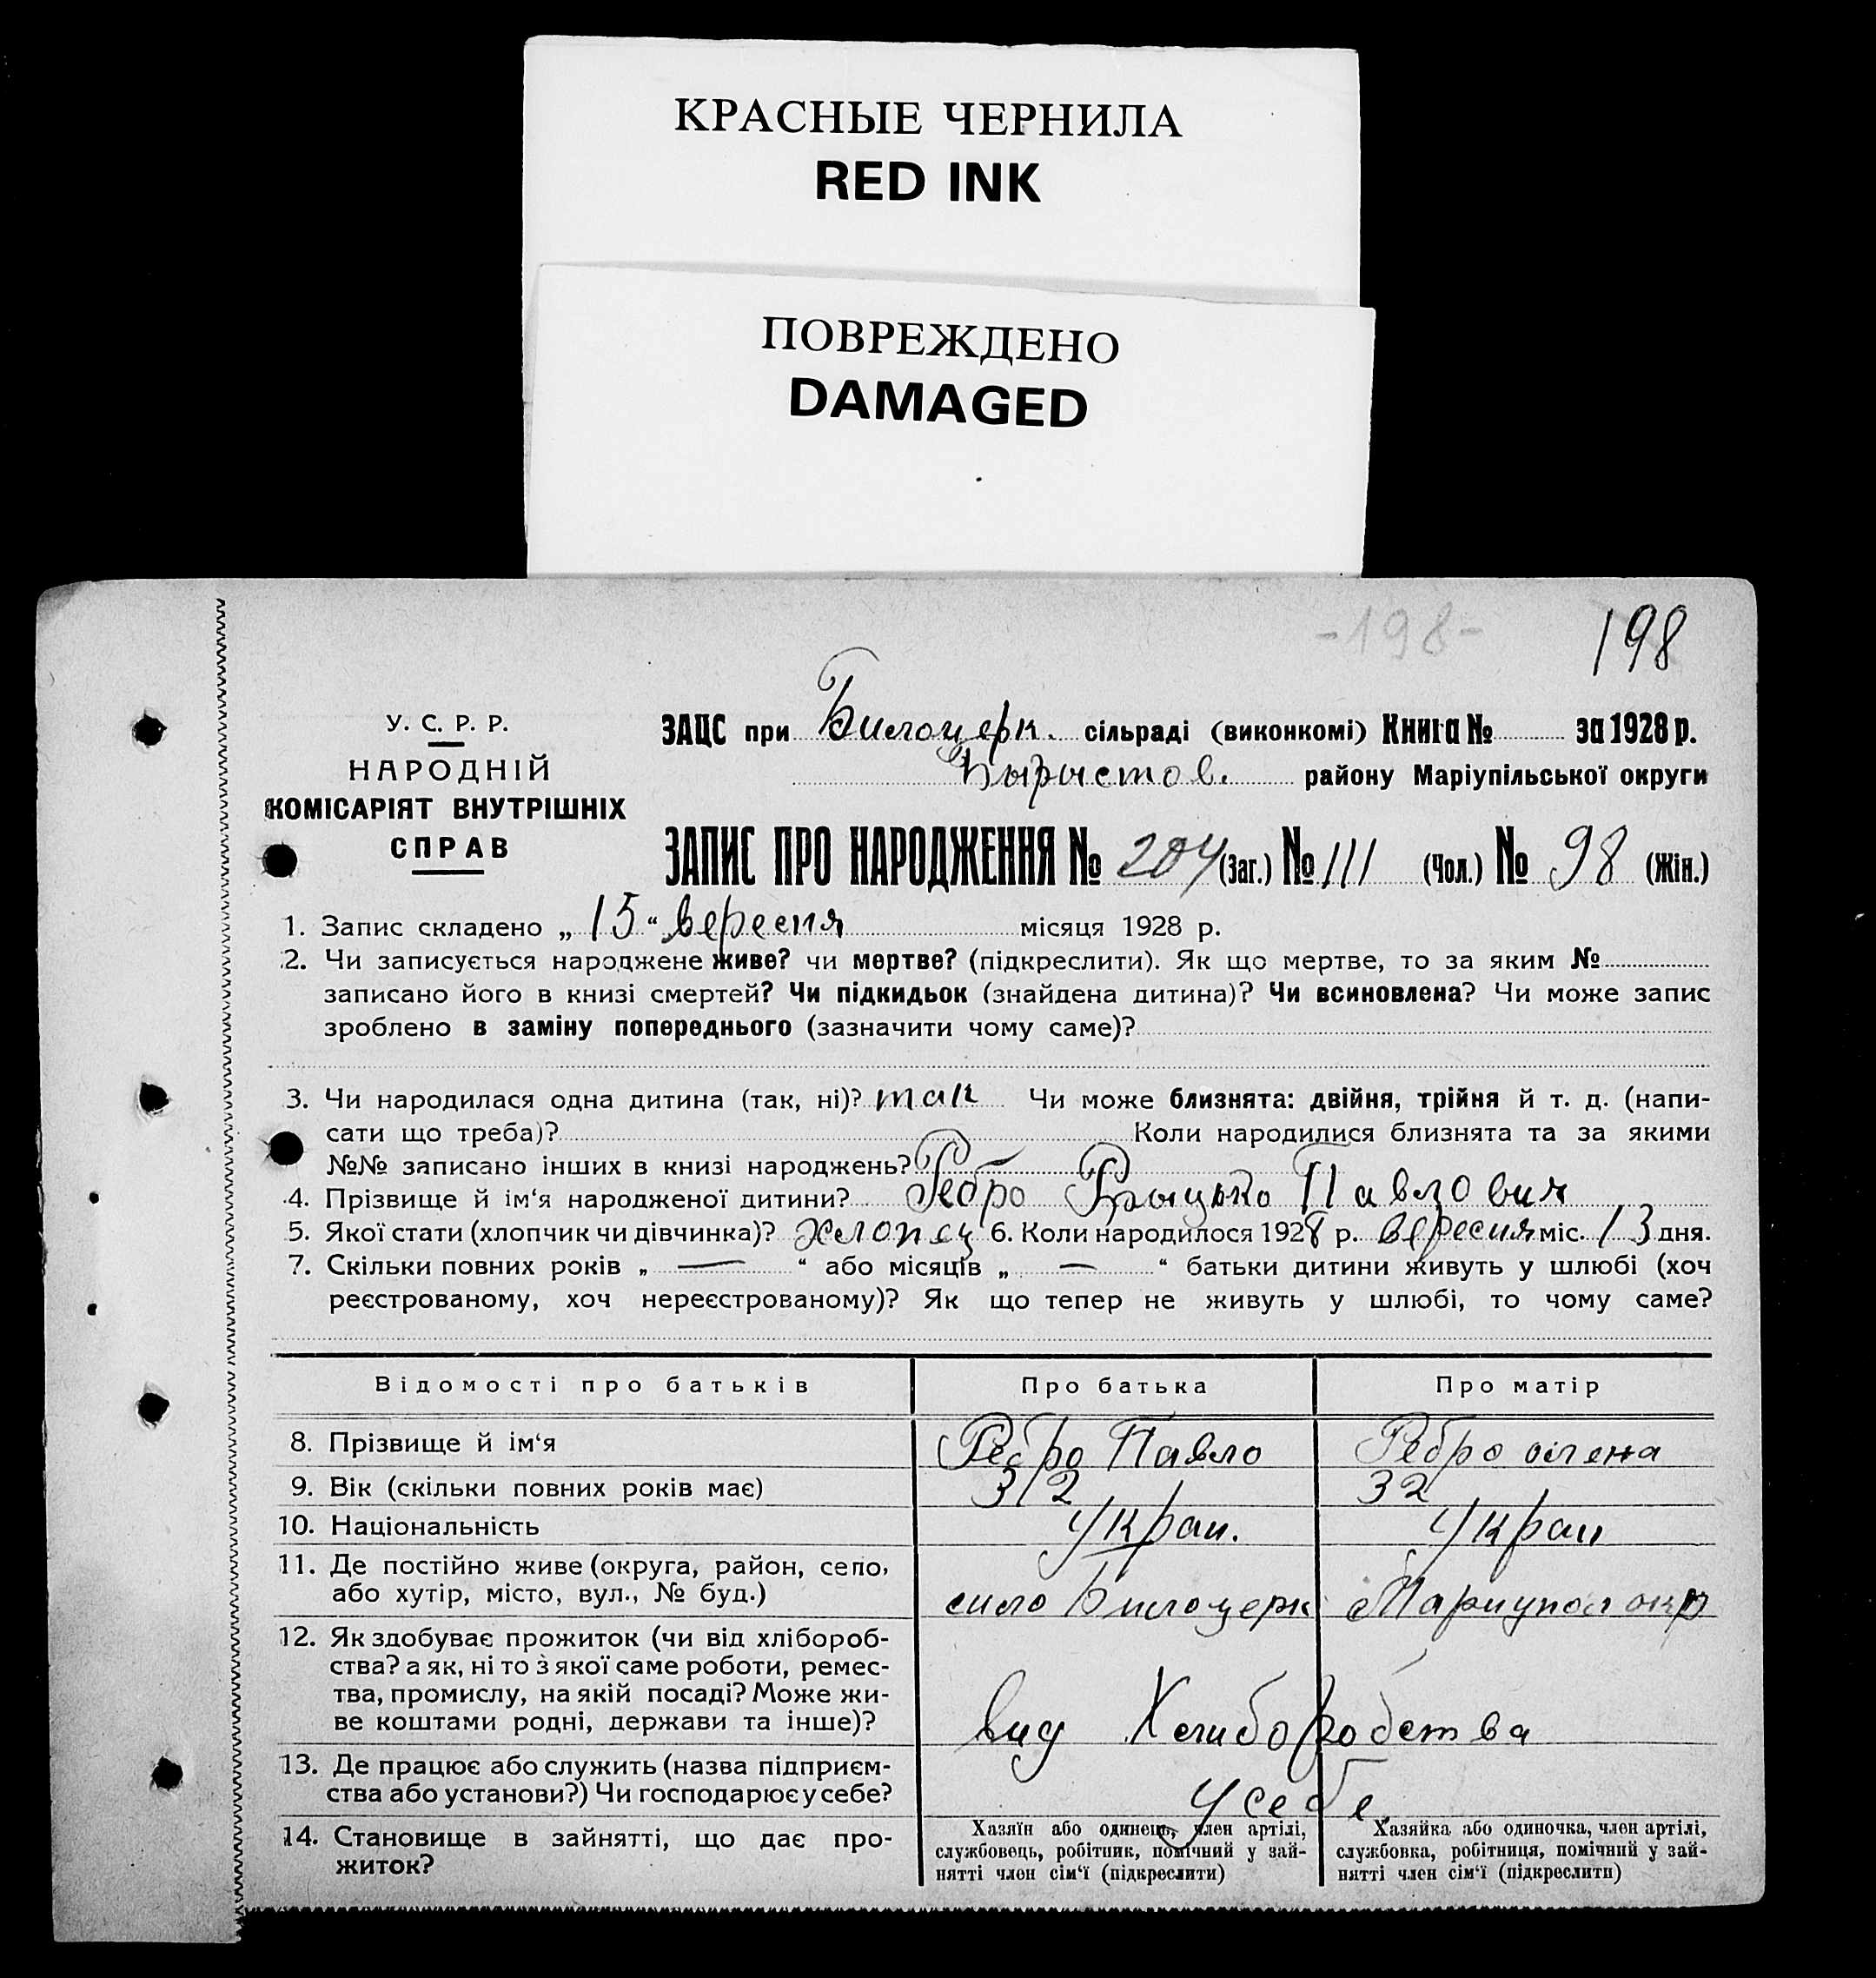 КРАСНЫЕ ЧЕРНИЛА
RED INK
ПОВРЕЖДЕНО
DAMAGED
-198- 198
У. С. Р. Р.
НАРОДНІЙ
КОМІСАРІЯТ ВНУТРІШНІХ
СПРАВ
ЗАЦС при Билоцерк. сільраді (виконкомі) Книга № за 1928 р.
району Маріупільської округи
ЗАПИС ПРО НАРОДЖЕННЯ № 204 (Заг.) № 111 (Чол.) № 98 (Жін.)
1. Запис складено „ 15 “ вересня місяця 1928 р.
2. Чи записується народжене живе? чи мертве? (підкреслити). Як що мертве, то за яким №
записано його в книзі смертей? Чи підкидьок (знайдена дитина)? Чи всиновлена? Чи може запис
зроблено в заміну попереднього (зазначити чому саме)?
3. Чи народилася одна дитина (так, ні)? так Чи може близнята: двійня, трійня й т. д. (напи-
сати що треба)? Коли народилися близнята та за якими
№№ записано інших в книзі народжень?
4. Прізвище й ім‘я народженої дитини? Ребро Грыцько Павлович
5. Якої стати (хлопчик чи дівчинка)? хлопец 6. Коли народилося 1928 р. вересня міс. 13 дня.
7. Скільки повних років „ — “ або місяців „ — “ батьки дитини живуть у шлюбі (хоч
реєстрованому, хоч нереєстрованому)? Як що тепер не живуть у шлюбі, то чому саме?
Відомості про батьків Про батька Про матір
8. Прізвище й ім‘я Ребро Павло Ребро олена
9. Вік (скільки повних років має) 32 32
10. Національність Украи. Украи
11. Де постійно живе (округа, район, село,
або хутір, місто, вул., № буд.) сило Билоцерк Мариупол окр
12. Як здобуває прожиток (чи від хлібороб-
ства? а як, ні то з якої саме роботи, ремес-
тва, промислу, на якій посаді? Може жи-
ве коштами родні, держави та інше)? вид Хлиборобства
13. Де працює або служить (назва підприєм-
ства або установи?) Чи господарює у себе? у себе
14. Становище в зайнятті, що дає про-
житок?
Хазяїн або одинець, член артілі,
службовець, робітник, помічний у зай-
нятті член сім‘ї (підкреслити)
Хазяйка або одиночка, член артілі,
службовка, робітниця, помічний у зай-
нятті член сім‘ї (підкреслити)